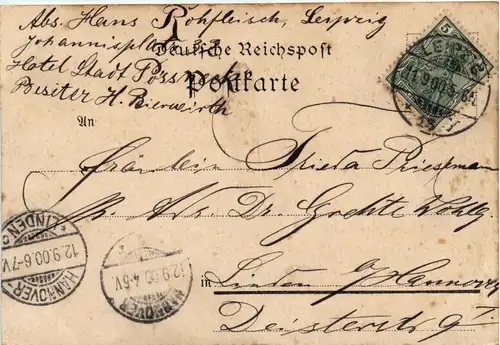 Abs. Hans Rohfleisch, Leipzig
Johannisplatz
Deutsche Reichspost
Hotel Stadt Pössneck
Postkarte
Besitzer H. Bierwirth
An
Fräulein Frieda Prieseman
p. Ads. Dr.
in Linden b/Hannover
Deisterstr. 9
5
LEIPZIG
11.9.00.5-6N
LINDEN
12.9.00.6-7V.
HANNOVER
HANNOVER
12.9.00.4-5V